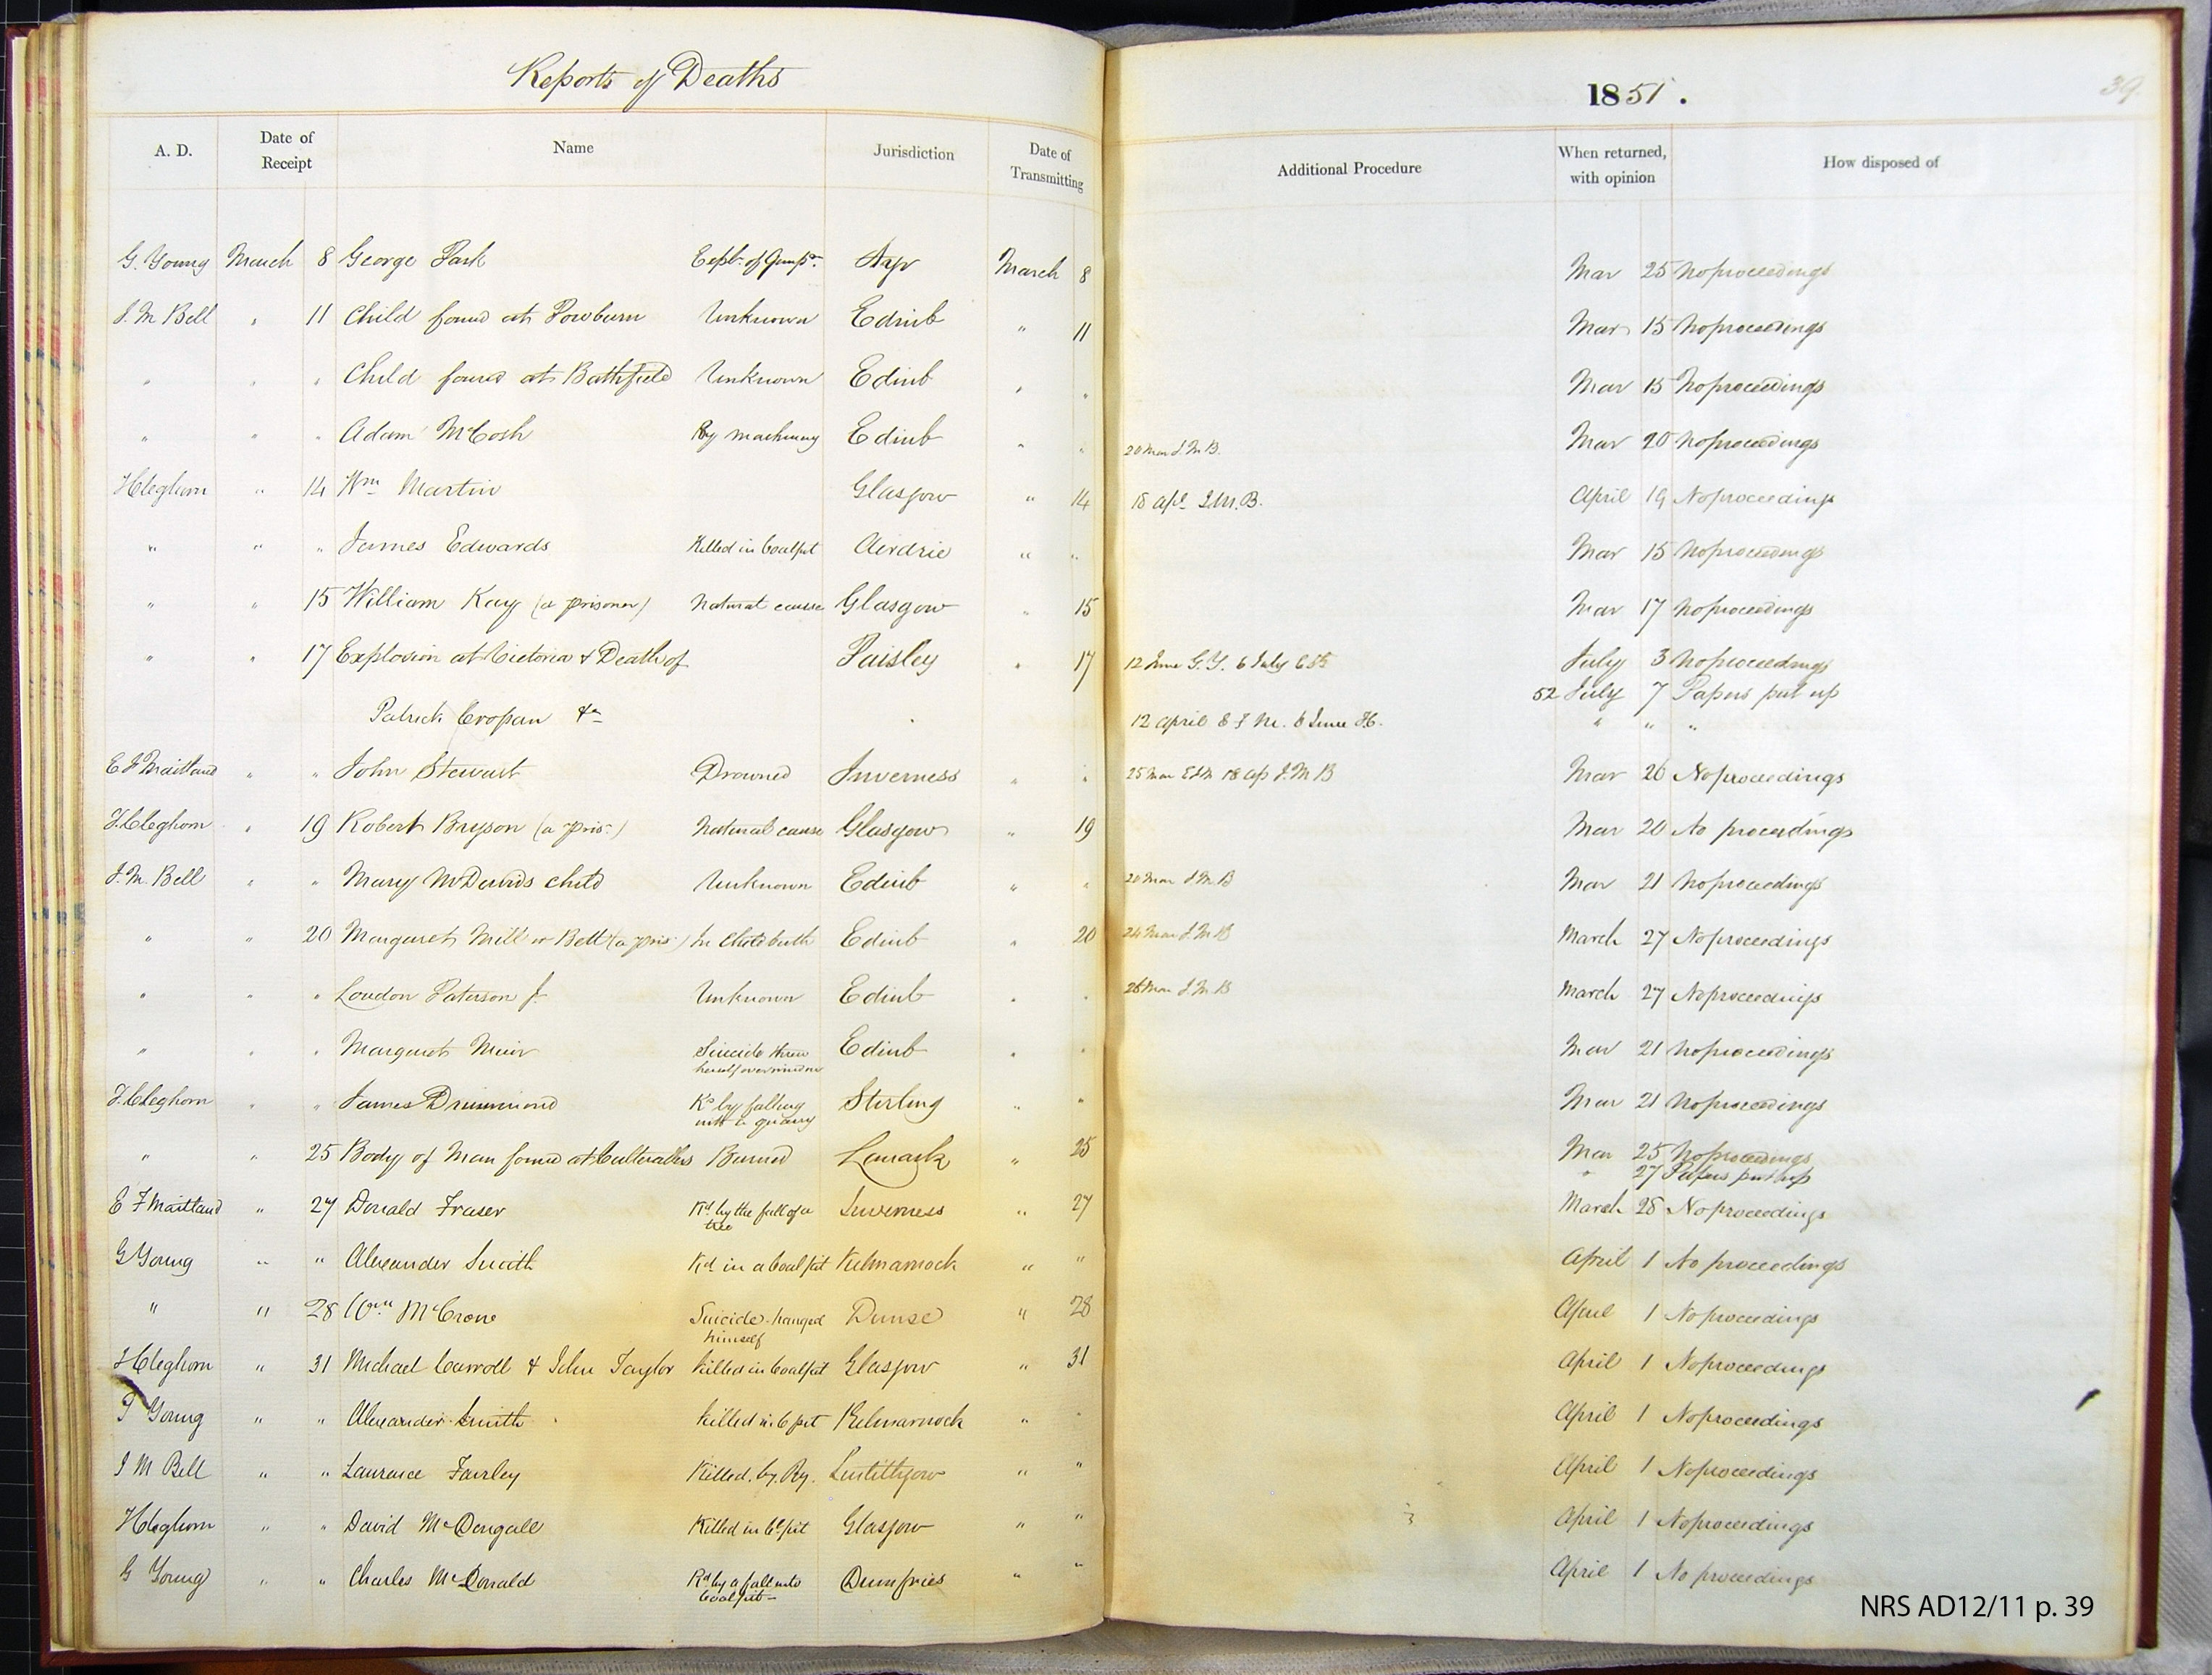 Reports of Deaths
1851.
39
A. D. Date of Receipt Name Jurisdiction Date of Transmitting Additional Procedure When returned, with opinion How disposed of
G. Young March 8 George Park Expl. of Ayr March 8 Mar 25 No proceedings
J. M Bell " 11 Child found at Powburn Unknown Edinb " 11 Mar 15 No proceedings
" " " Child found at Bathfield Unknown Edinb " " Mar 15 No proceedings
" " " Adam McCosh By machinery Edinb " " 20 Mar J. M. B. Mar 20 No proceedings
J Cleghorn " 14 Wm Martin Glasgow " 14 18 Apl J. M. B. April 19 No proceedings
" " " James Edwards Killed in Coalpit Airdrie " " Mar 15 No proceedings
" " 15 William Kay (a prisoner) Natural cause Glasgow " 15 Mar 17 No proceedings
" " 17 Explosion at Victoria & Death of Paisley " 17 12 June G. Y. 6 July July 3 No proceedings
52 July 7 Papers put up
Patrick Crossan &c 12 April E F M. 6 June " " "
E F Maitland " " John Stewart Drowned Inverness " " 25 Mar EFM 18 Ap J. M B Mar 26 No proceedings
J. Cleghorn " 19 Robert Bryson (a pris.) Natural cause Glasgow " 19 Mar 20 No proceedings
J. M. Bell " " Mary child Unknown Edinb " " 20 Mar J M B Mar 21 No proceedings
" " 20 Margaret Mill or Bell (a pris.) In Childbirth Edinb " 20 24 Mar J. M B March 27 No proceedings
" " " Loudon Paterson Jr Unknown Edinb " " 26 Mar J. M. B March 27 No proceedings
" " " Margaret Muir Suicide threw herself over window Edinb " " Mar 21 No proceedings
J. Cleghorn " " James Drummond Kd by falling into a quarry Stirling " " Mar 21 No proceedings
" " 25 Body of Man found at Culterallers Burned Lanark " 25 Mar 25 No proceedings
" 27 Papers put up
E F Maitland " 27 Donald Fraser Kd by the fall of a tree Inverness " 27 March 28 No proceedings
G Young " " Alexander Smith Kd in a Coal pit Kilmarnock " " April 1 No proceedings
" " 28 Wm McCrone Suicide hanged himself Dunse " 28 April 1 No proceedings
J Cleghorn " 31 Michael Carroll & John Taylor Killed in Coalpit Glasgow " 31 April 1 No proceedings
G Young " " Alexander Smith Killed in C pit Kilmarnock " " April 1 No proceedings
J M Bell " " Laurance Fairley Killed by Ry. Linlithgow " " April 1 No proceedings
J Cleghorn " " David McDougall Killed in Cl pit Glasgow " " April 1 No proceedings
G Young " " Charles McDonald Kd by a fall into Coalpit Dumfries " " April 1 No proceedings
NRS AD12/11 p. 39